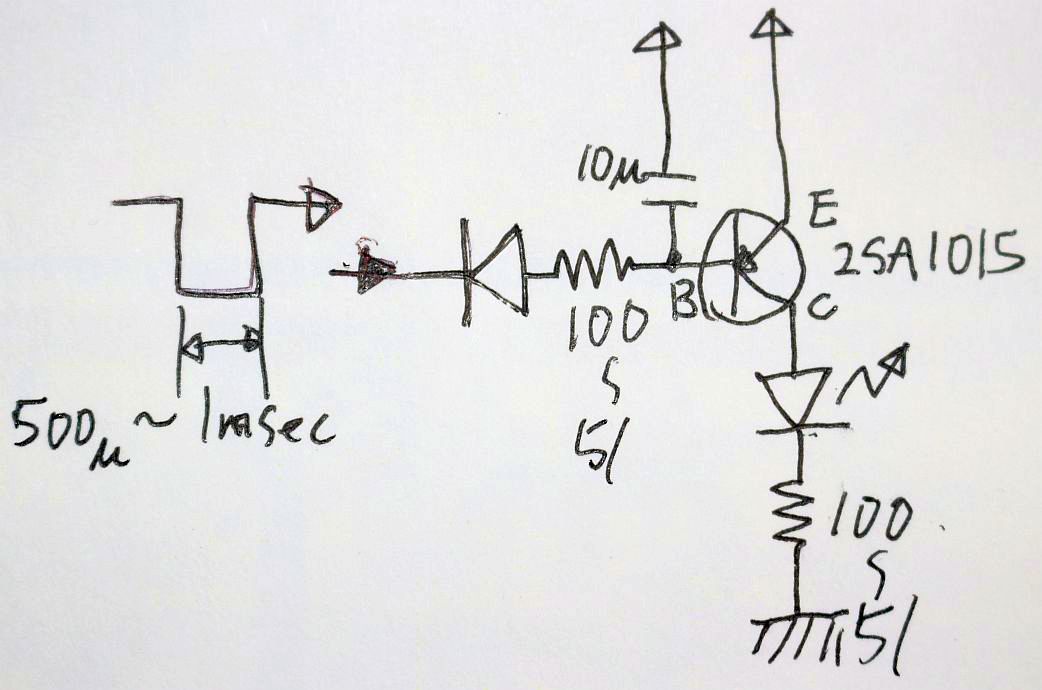 10μ
E
2SA1015
B
C
100
S
51
500μ ~ 1msec
100
S
51